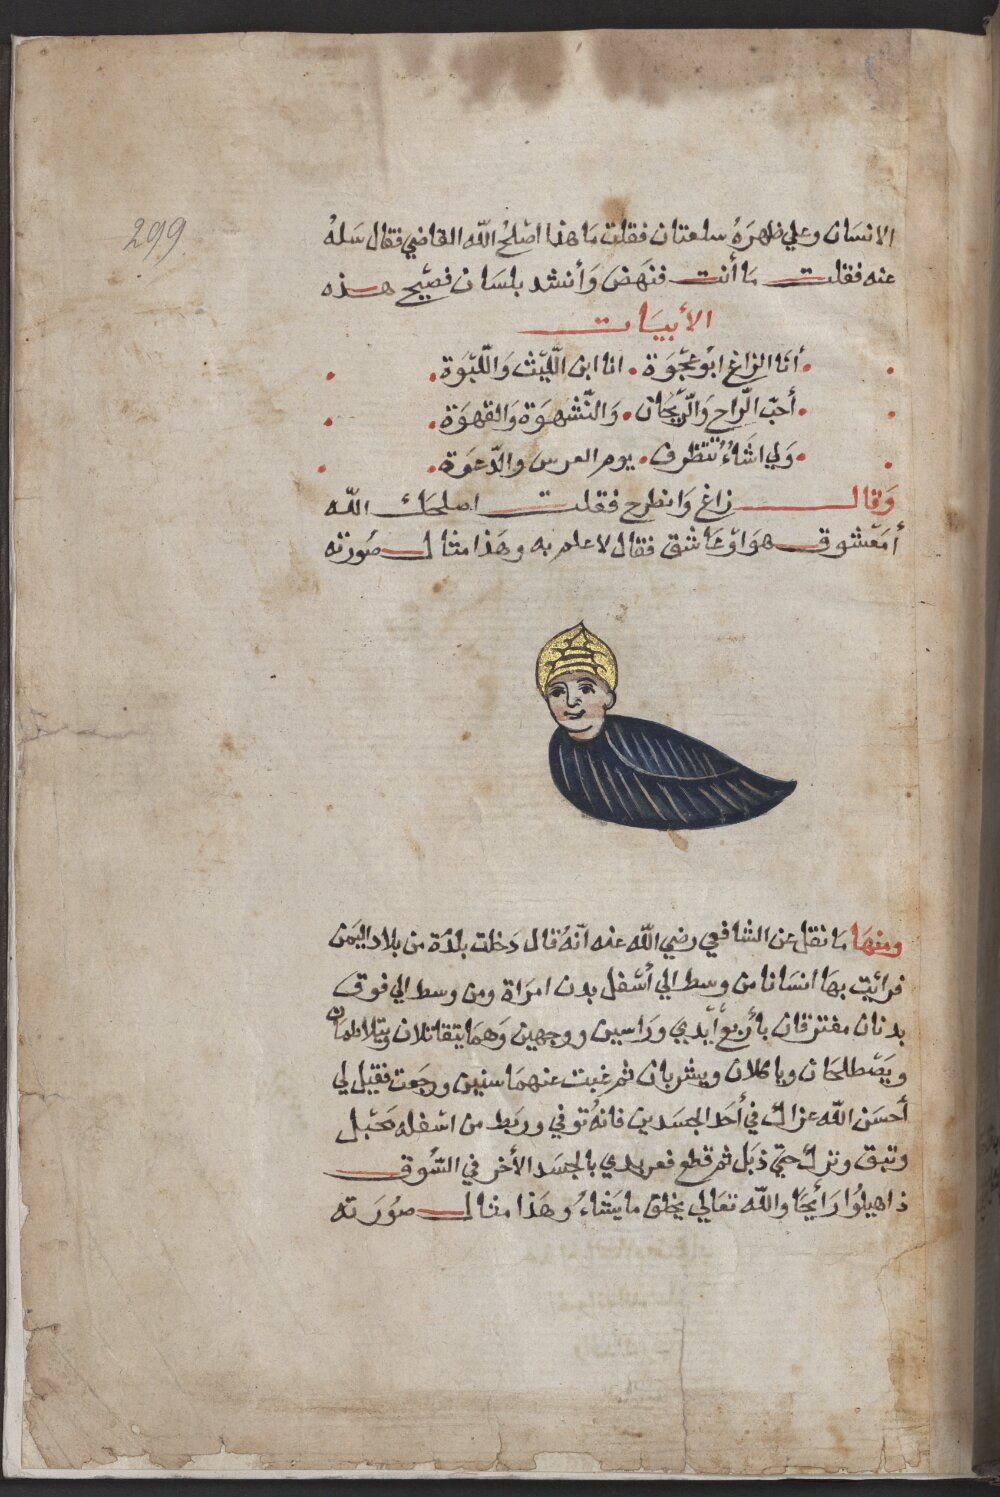 299
الانسَان وعلي ظهرَهُ سلعتان فقلت مَا هذا اصْلحُ الله القاضي فقال سَلهُ
عنه فقلت مَا أنت فنهَض وَأنشد بلسَان فصيْح هذه
الأبيَات
أنَا الزاغ ابوُ عجْوَة . انا ابن اللّيْث وَاللّبْوَة
أحبّ الرّاح وَالرّيْحَان . وَالنّشهوَة وَالقهوَة
وَلي اشَاءُ تُتظرف . يوم العرس والدّعوَة
وَقال زاغ وَانطرح فقلت اصلحك الله
أمَعْشوق هوَ اوْ عَاشق فقال لا علم به وهَذا مثال صُورَته
ومنهَا مَا نقل عن الشافعي رضي الله عنه انّهُ قال دَخلت بلدَة من بلاد اليَمن
فرائيْت بهَا انسَانا من وسط الي أسْفل بدن امرَاة ومن وسط الي فوق
بدنان مفترقان بأربع أيْدي ورَاسين ووجهين وَهمَا يتقاتلان ويتلاطمان
ويَصْطلحَان وياكلان ويشربان ثم غبت عنهمَا سنين ورجَعت فقيْل لي
أحسَن الله عزاك في أحَد الجسَدين فانهُ توُفي وربَط من اسْفله بحَبْل
وتبق وترك حتي ذبَل ثم قطع فعهدي بالجسَد الأخر في السُّوق
ذاهبا وَرَائيحَا والله تعَالي يخلق ما يَشاءُ وهَذا مثال صوُرَته